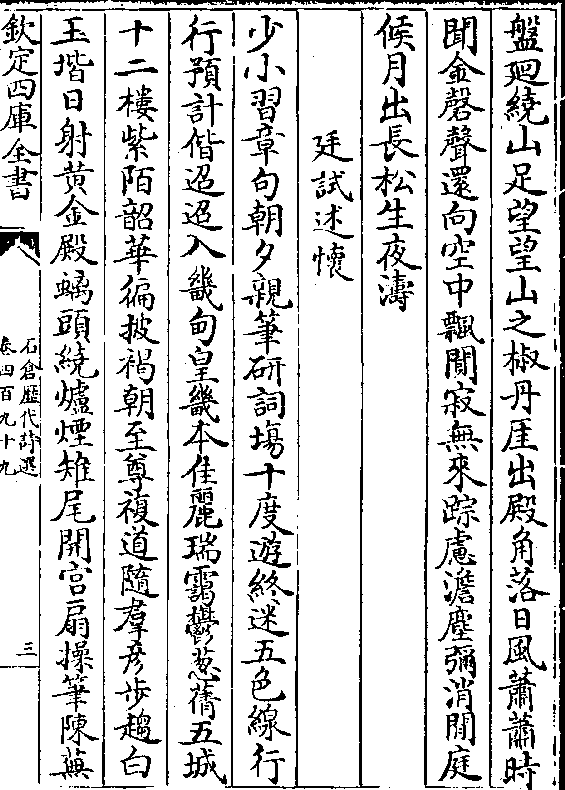 盤廻繞山足望望山之椒丹厓出殿角落日風蕭蕭時
聞金磬聲還向空中飄閴寂無來踪慮澹塵彌消閒庭
候月出長松生夜濤
廷試述懷
少小習章句朝夕親筆研詞塲十度遊終迷五色線行
行預計偕迢迢入畿甸皇畿本佳麗瑞靄鬱葱蒨五城
十二樓紫陌韶華徧披褐朝至尊複道隨羣彦步趨白
玉堦日射黄金殿螭頭繞爐煙雉尾開宫扇操筆陳蕪
欽定四庫全書
石倉歷代詩選
卷四百九十九
三